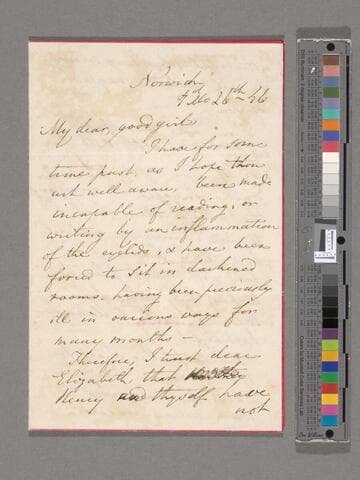 Norwich
Mo 26th - 46
My dear, good girl
I have for some
time past, as I hope thou
art well aware, been made
incapable of reading, or
writing by an inflammation
of the eyelids, & have been
forced to sit in darkened
rooms, having been previously
ill in various ways for
many months -
Therefore, I trust dear
Elizabeth that
Henry and thyself have
not